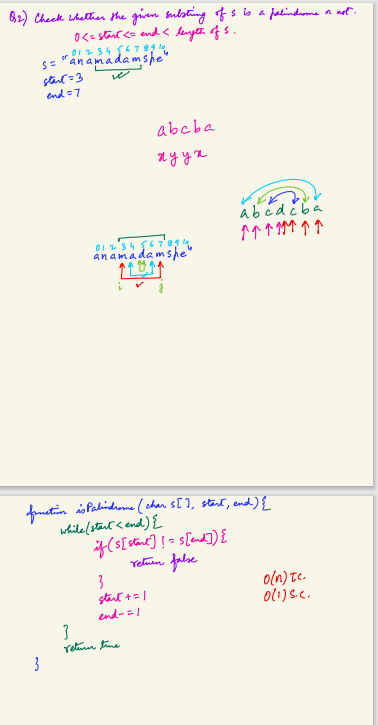 Q2) Check whether the given substring of s is a palindrome or not.
0 <= start <= end < length of s.
0 1 2 3 4 5 6 7 8 9 10
s = "anamadamspe"
start = 3
end = 7
abcba
xyyx
abcdcba
0 1 2 3 4 5 6 7 8 9 10
anamadamspe"
i j
function isPalindrome (char s[], start, end) {
while (start < end) {
if (s[start] != s[end]) {
return false
}
O(n) T.C.
start += 1
O(1) S.C.
end -= 1
}
return true
}